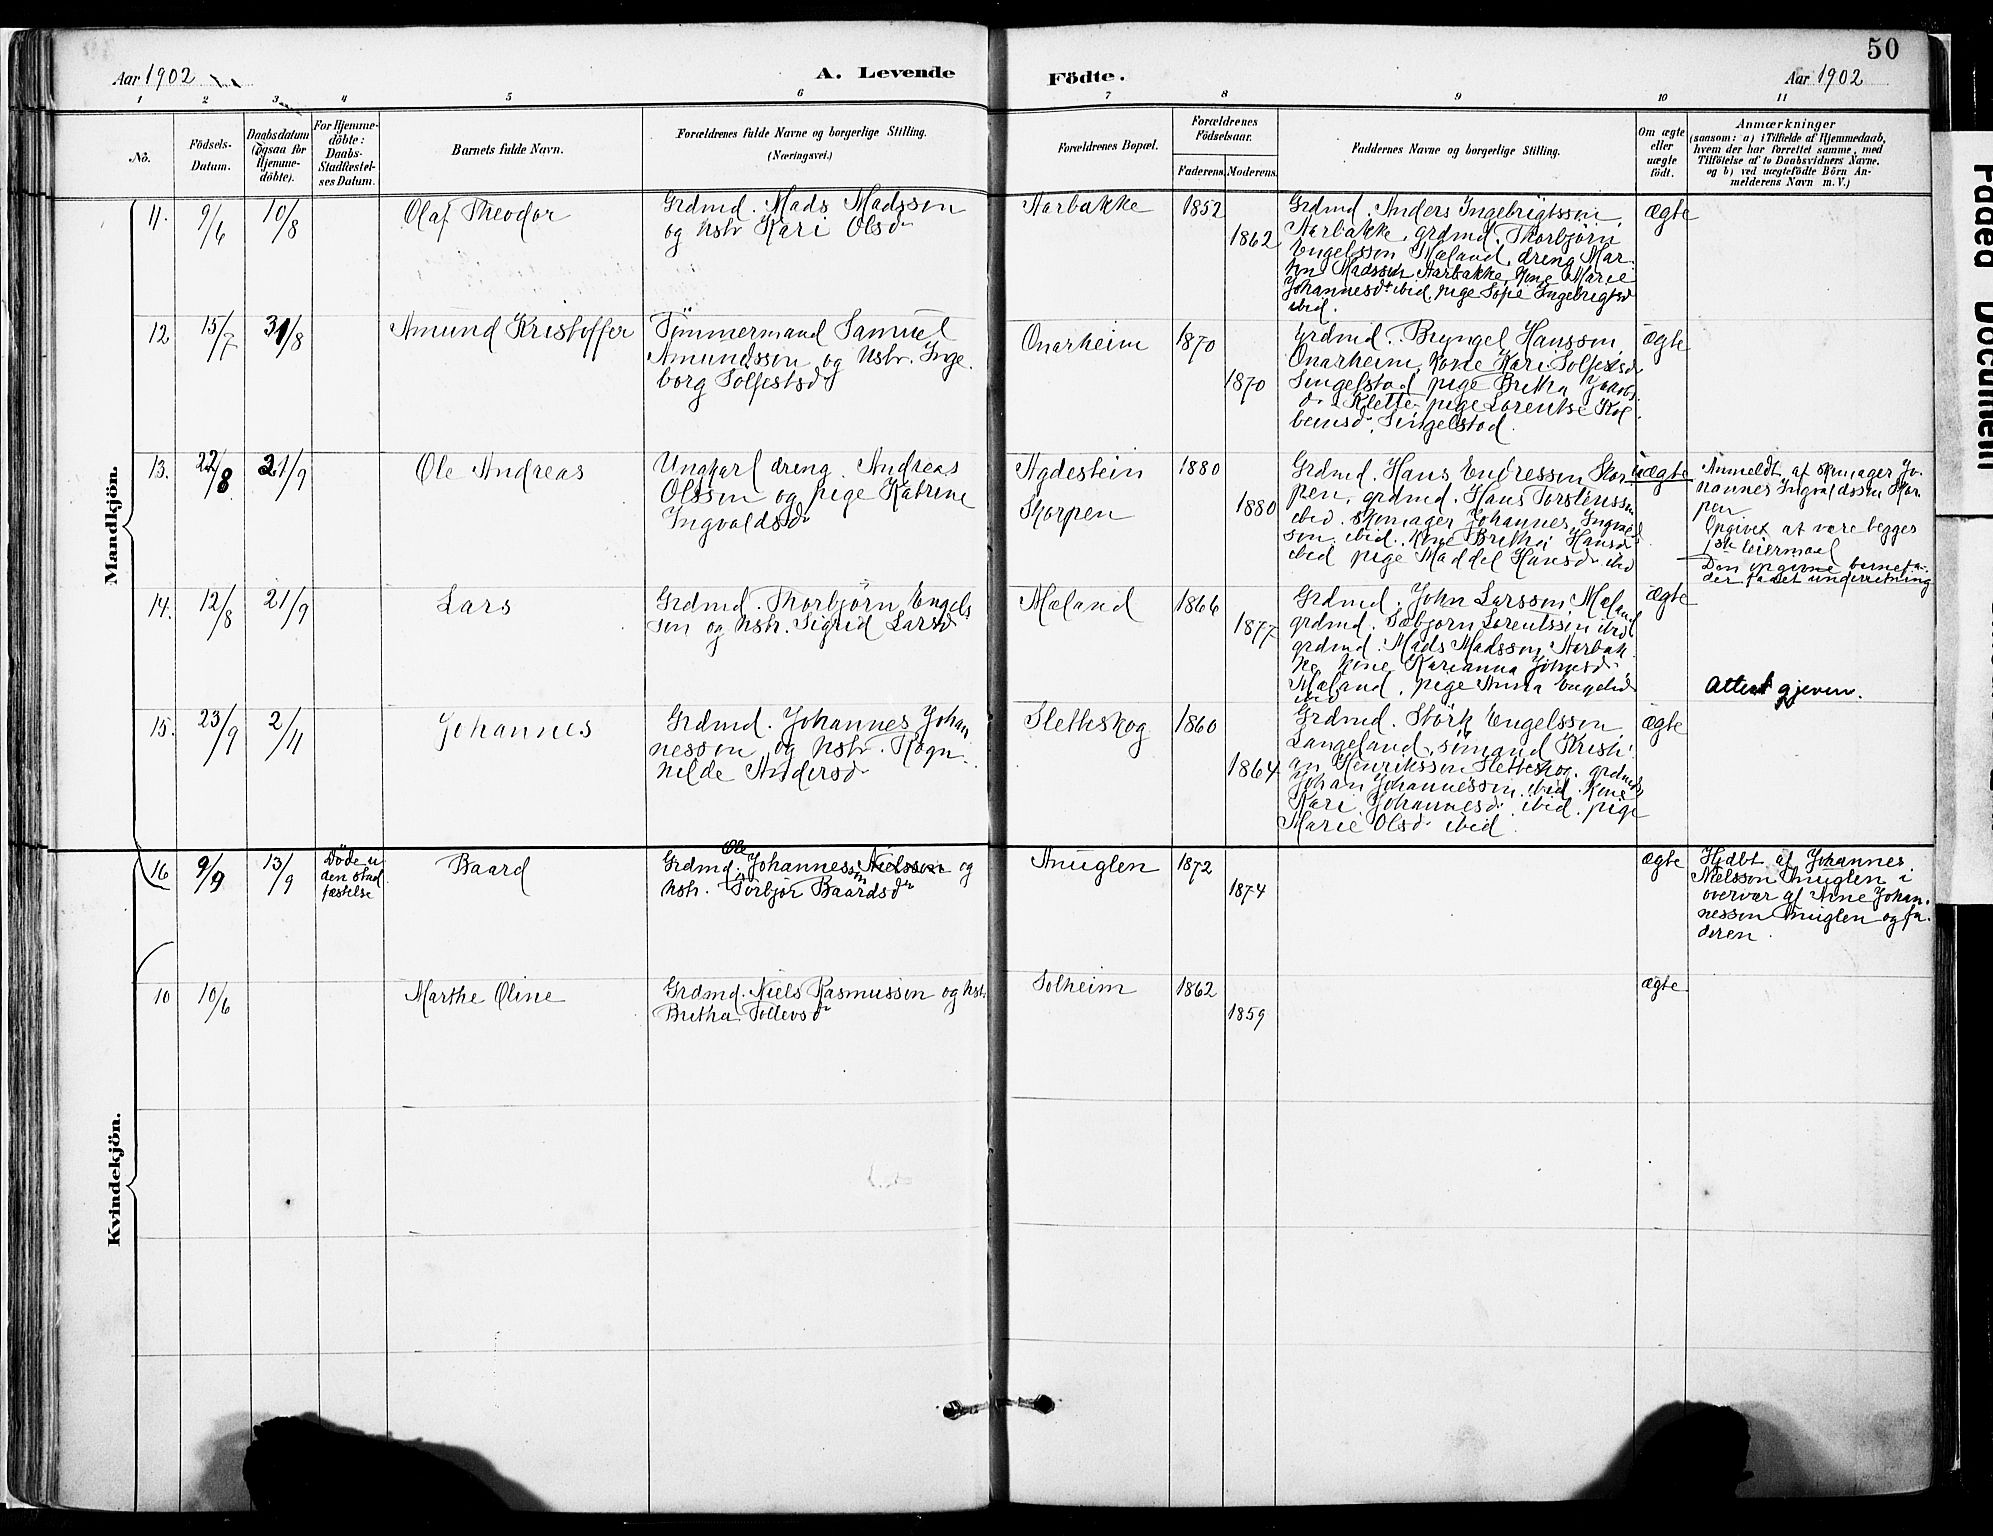 50
Aar 1902
A. Levende
Födte.
Aar 1902
1 2 3 4 5 6 7 8 9 10 11
No.
Födsels-
Datum.
Daabsdatum
(ogsaa for
Hjemme-
döbte).
For Hjemme-
döbte:
Daabs-
Stadfæstel-
ses Datum.
Barnets fulde Navn.
Forældrenes fulde Navne og borgerlige Stilling.
(Næringsvei.)
Forældrenes Bopæl.
Forældrenes
Födselsaar.
Faderens. Moderens.
Faddernes Navne og borgerlige Stilling.
Om ægte
eller
uægte
födt.
Anmærkninger
(saasom: a) i Tilfælde af Hjemmedaab,
hvem der har forrettet samme, med
Tilföielse af to Daabsvidners Navne,
og b) ved uægtefödte Börn An-
melderens Navn m.V.)
Mandkjön.
11.
9/6
10/8
Olaf Theodor
Grdmd. Mads Madsson
og hstr Kari Olsdr
Aarbakke
1852
1862
Grdmd. Anders Ingebrigtsson
Aarbakke, grdmd. Thorbjörn
Engelsson Mæland, dreng Mar-
tin Madsson Aarbakke, kone Marie
Johannesdr ibid, pige Sofie Ingebrigtsdr
ibid.
ægte
12
15/7
31/8
Amund Kristoffer
Tömmermand Samuel
Amundsson og hstr. Inge
borg Solfestsdr
Onarheim
1870
1870
Grdmd. Bryngel Hansson
Onarheim, kone Kari Solfestsdr
Singelstad, pige Britha
dr Klette, pige Lorentse Kol
bensdr, Singelstad.
ægte
13.
22/8
21/9
Ole Andreas
Ungkarl dreng Andreas
Olsson og pige Katrine
Ingvaldsdr
Agdestein
Skorpen
1880
1880
Grdmd. Hans Endresson Skor
pen, grdmd. Hans Torstensson
ibid. skomager Johannes Ingvald
son ibid. kone Britha Hansdr
ibid pige Maddel Hansdr ibid
uægte
Anmeldt af skomager Jo-
hannes Ingvaldsson Skor
pen
Opgivet at være begges
1ste leiermaal
Den opgivne barnefa-
der fadet underretning
14.
12/8
21/9
Lars
Grdmd. Thorbjörn Engels
son og hstr. Sigrid Larsdr
Mæland
1866
1877
Grdmd. John Larsson Mæland
grdmd. Sæbjörn Lorentsson ibid
grdmd. Mads Madsson Aarbak
ke, kone Karianna Johnsdr
Mæland, pige Anna Engelsdr
ibid
ægte
Attest gjeven.
15.
23/9
2/11
Johannes
Grdmd. Johannes Johan
nesson og hstr. Ragn-
hilde Andersdr
Sletteskog
1860
1864
Grdmd. Störk Engelsson
Langeland, sömand Kristi
an Henriksson Sletteskog, grdmd
Johan Johannesson ibid. kone
Kari Johannesdr ibid. pige
Marie Olsdr ibid.
ægte
16
9/9
13/9
Döde u
den stad
fæstelse
Baard
Ole
Grdmd. Johannesson Nielsson og
hstr. Torbjör Baardsdr
Anuglen
1872
1874
ægte
Hjdbt af Johannes
Nielsson Anuglen i
overvær af Arne Johan-
nesson Anuglen og fa-
deren.
Kvindekjön.
10
10/6
Marthe Oline
Grdmd. Niels Rasmusson og hstr
Britha Tollevsdr
Solheim
1862
1859
ægte